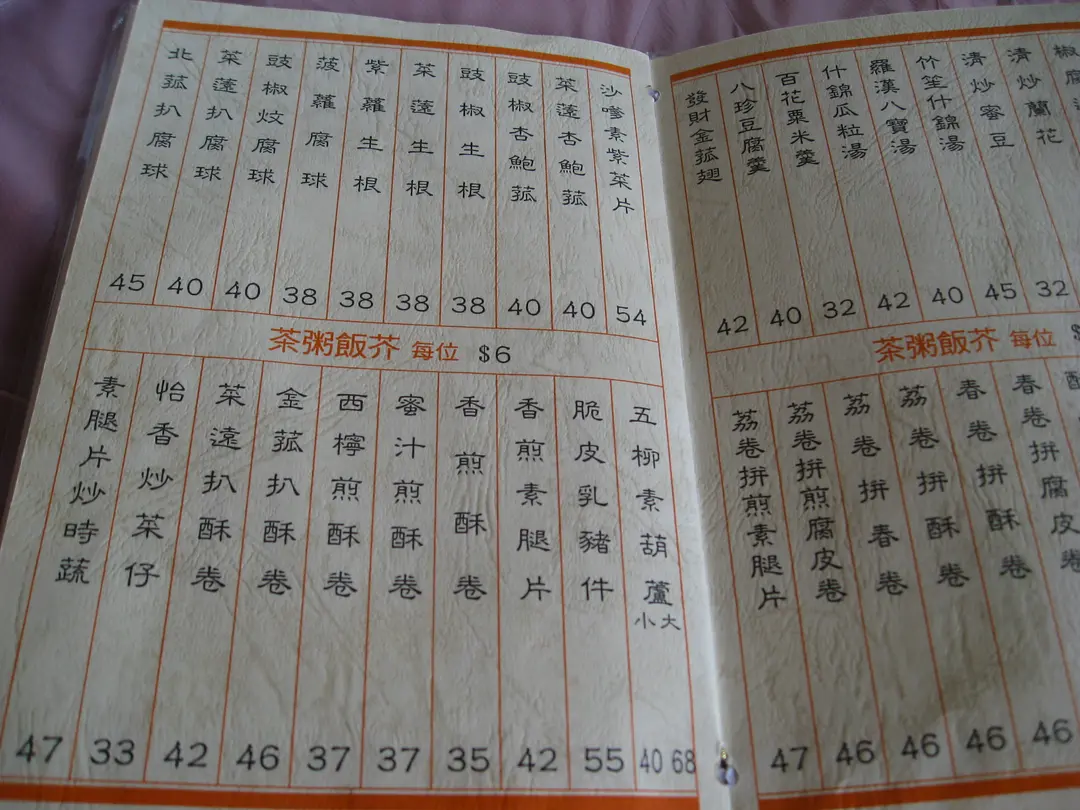 椒腐
清炒蘭花
清炒蜜豆 32
竹笙什錦湯 45
羅漢八寶湯 40
什錦瓜粒湯 42
百花粟米羹 32
八珍豆腐羹 40
發財金菰翅 42
茶粥飯芥 每位
春卷拼腐皮卷
春卷拼酥卷 46
荔卷拼酥卷 46
荔卷拼春卷 46
荔卷拼煎腐皮卷 46
荔卷拼煎素腿片 47
沙嗲素紫菜片 54
菜薳杏鮑菰 40
豉椒杏鮑菰 40
豉椒生根 38
菜薳生根 38
紫蘿生根 38
菠蘿腐球 38
豉椒炆腐球 40
菜薳扒腐球 40
北菰扒腐球 45
茶粥飯芥 每位 $6
五柳素葫蘆 小大 40 68
脆皮乳豬件 55
香煎素腿片 42
香煎酥卷 35
蜜汁煎酥卷 37
西檸煎酥卷 37
金菰扒酥卷 46
菜遠扒酥卷 42
怡香炒菜仔 33
素腿片炒時蔬 47